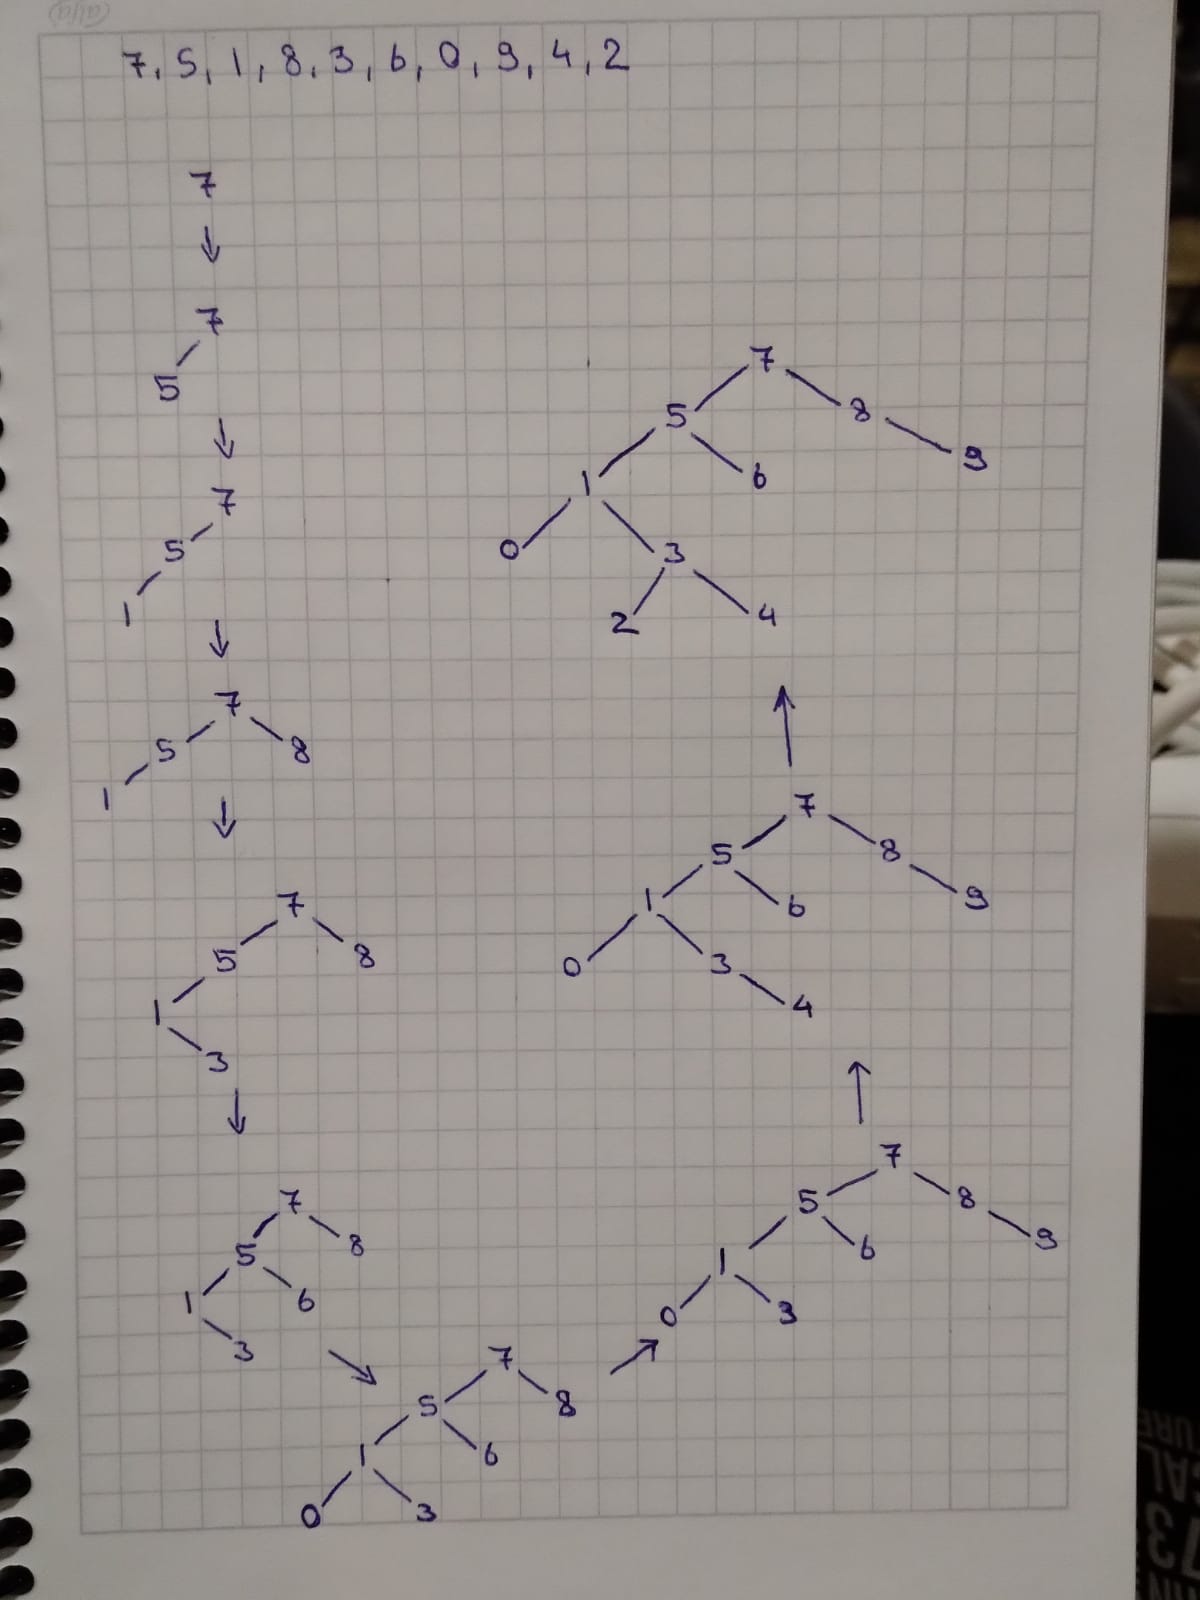 7, 5, 1, 8, 3, 6, 0, 9, 4, 2
7
↓
7
5
↓
7
5
1
↓
7
5 8
1
↓
7
5 8
1
3
↓
7
5 8
1 6
3
↘
7
5 8
1 6
0 3
↗
7
5 8
1 6 9
0 3
↑
7
5 8
1 6 9
0 3
4
↑
7
5 8
1 6 9
0 3
2 4